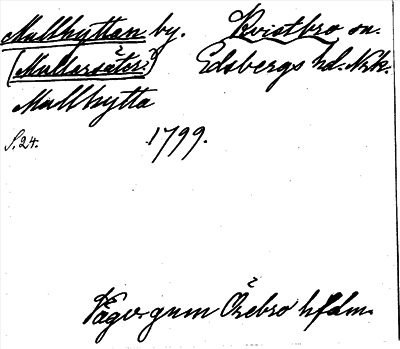 Mullhyttan by. Kvistbro sn.
[Mullersäter?] Edsbergs hd. Nrk.
Mullhytta
S. 24. 1799.
Vägvgnm Örebro hfdm.